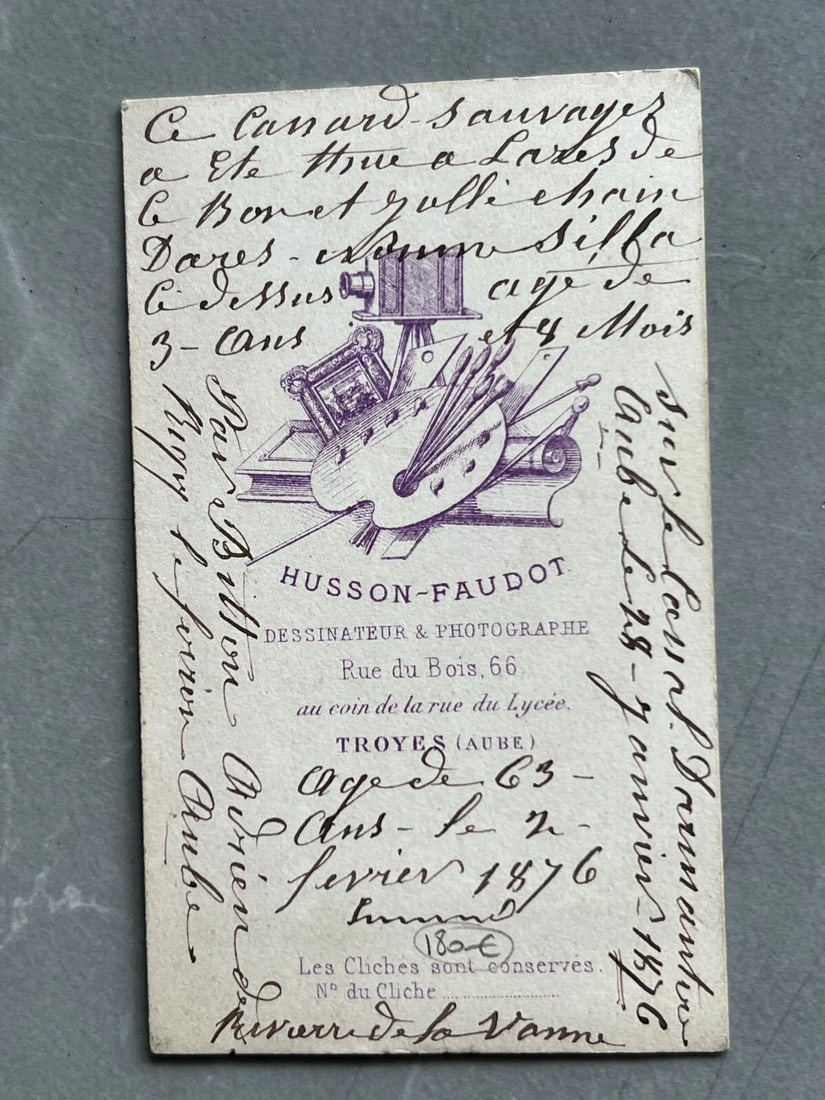 Ce Canard-Sauvages
a Ete ttue a Lares de
Ce Bon et Jolli chain
Dares - Silfa
Ci dessus age de
3 - Ans et 8 Mois
sur le Canal.
Aube Le 28 - Janvier 1876
Par Bitton Adrien de
Aube
HUSSON-FAUDOT
DESSINATEUR & PHOTOGRAPHE
Rue du Bois, 66.
au coin de la rue du Lycée.
TROYES (AUBE)
Age de 63 -
Ans - le 2 -
fevrier 1876
180 €
Les Clichés sont conservés.
N° du Cliché
de la Vanne